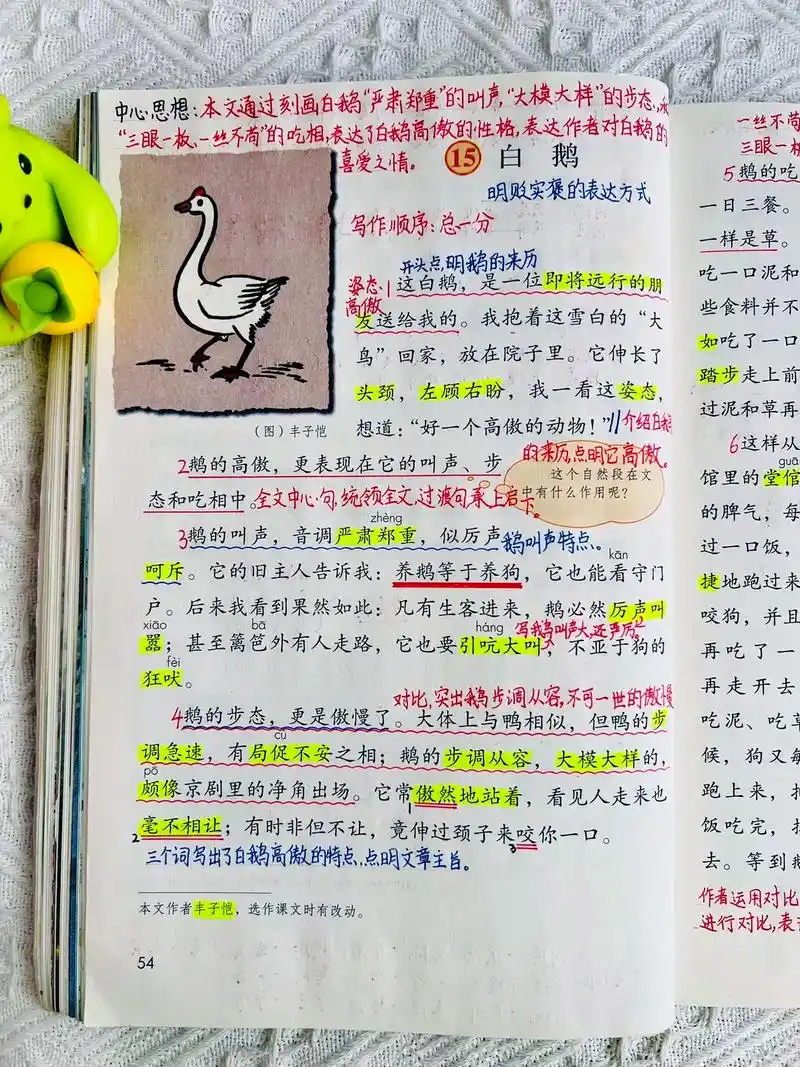 中心思想：本文通过刻画白鹅“严肃郑重”的叫声，“大模大样”的步态、
“三眼一板、一丝不苟”的吃相，表达了白鹅高傲的性格，表达作者对白鹅的
喜爱之情。
15 白鹅
明贬实褒的表达方式
写作顺序：总一分
开头点明鹅的来历
姿态：
高傲
1这白鹅，是一位即将远行的朋
友送给我的。我抱着这雪白的“大
鸟”回家，放在院子里。它伸长了
头颈，左顾右盼，我一看这姿态，
想道：“好一个高傲的动物！”||介绍白鹅
的来历，点明它高傲。
（图）丰子恺
2鹅的高傲，更表现在它的叫声、步
态和吃相中。全文中心句，统领全文，过渡句，承上启下。
这个自然段在文
中有什么作用呢？
zhèng
3鹅的叫声，音调严肃郑重，似厉声
鹅叫声特点。
kān
呵斥。它的旧主人告诉我：养鹅等于养狗，它也能看守门
户。后来我看到果然如此：凡有生客进来，鹅必然厉声叫
xiāo bā háng
写鹅叫声大，还严厉。
嚣；甚至篱笆外有人走路，它也要引吭大叫，不亚于狗的
fèi
狂吠。
对比，突出鹅步调从容，不可一世的傲慢
4鹅的步态，更是傲慢了。大体上与鸭相似，但鸭的步
cù
调急速，有局促不安之相；鹅的步调从容，大模大样的，
pō
颇像京剧里的净角出场。它常傲然地站着，看见人走来也
1
毫不相让；有时非但不让，竟伸过颈子来咬你一口。
2 3
三个词写出了白鹅高傲的特点，点明文章主旨。
本文作者丰子恺，选作课文时有改动。
54
一丝不苟
三眼一板
5鹅的吃
一日三餐。
一样是草。
吃一口泥和
些食料并不
如吃了一口
踏步走上前
过泥和草再
6这样从
guǎn
馆里的堂倌
的脾气，每
过一口饭，
捷地跑过来
咬狗，并且
再吃了一
再走开去
吃泥、吃草
候，狗又每
跑上来，把
饭吃完，扬
去。等到鹅
作者运用对比
进行对比，表